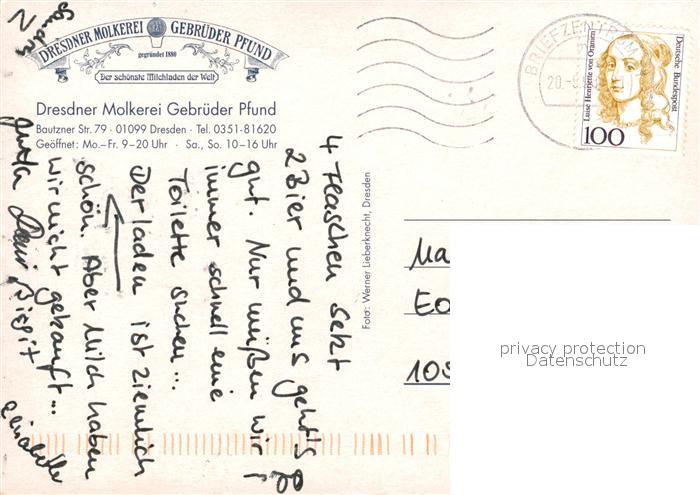 DRESDNER MOLKEREI GEBRÜDER PFUND
gegründet 1880
Der schönste Milchladen der Welt
Dresdner Molkerei Gebrüder Pfund
Bautzner Str. 79 · 01099 Dresden · Tel. 0351-81620
Geöffnet: Mo.–Fr. 9–20 Uhr · Sa., So. 10–16 Uhr
4 Flaschen Sekt
2 Bier und uns geht's
gut. Nur müßen wir
immer schnell eine
Toilette suchen...
Der Laden ist ziemlich
schön. Aber Milch haben
wir nicht gekauft...
Birgit
Sandra
Foto: Werner Lieberknecht, Dresden
BRIEFZENTRUM
20.
Luise Henriette von Oranien
Deutsche Bundespost
100
Ma
105
privacy protection
Datenschutz